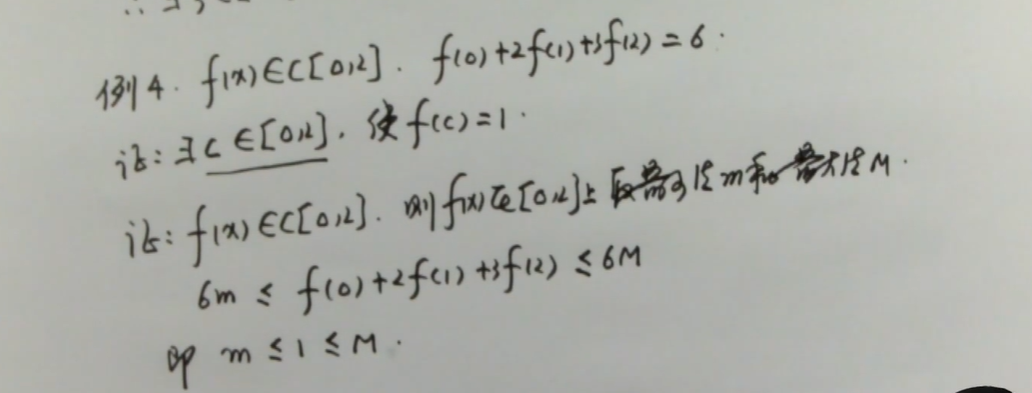 例4. f(x)∈C[0,2]. f(0)+2f(1)+3f(2)=6.
证: ∃c∈[0,2]. 使f(c)=1.
证: f(x)∈C[0,2]. 则f(x)在[0,2]上取最小值m和最大值M.
6m ≤ f(0)+2f(1)+3f(2) ≤ 6M
即 m ≤ 1 ≤ M.